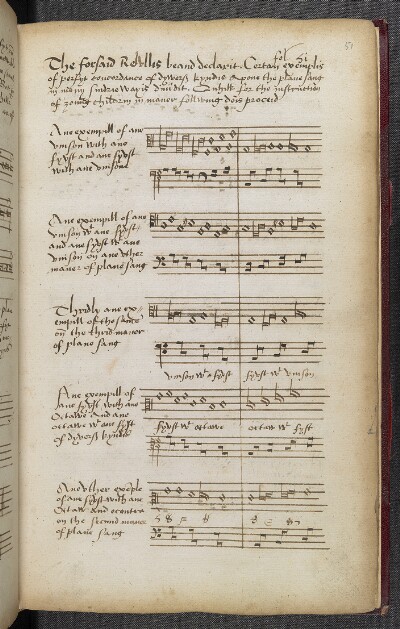 The forsaid Rewllis beand declarit. Certan exemplis
of perfyt concordance of dyverss kyndis apone the plane sang
in mony sindrie wayis devidit. Quhilk for the instruction
of zoung childrin in maner following dois proceid
Ane exempill of ane
unison with ane
fyvst and ane fyvst
with ane unisone
Ane exempill of ane
unison wt ane fyvst
and ane fyvst wt ane
unison on ane uther
maner of plane sang
Thrydly ane ex-
empill of the same
on the thrid maner
of plane sang
unison wt a fyvst
fyvst wt unison
Ane exempill of
ane fyvst with ane
octawe And ane
octawe wt ane fyvst
of dyverss kyndis
fyvst wt octawe
octawe wt fyvst
Ane other exemple
of ane fyvst with ane
octaw And econtra
on the second maner
of plane sang